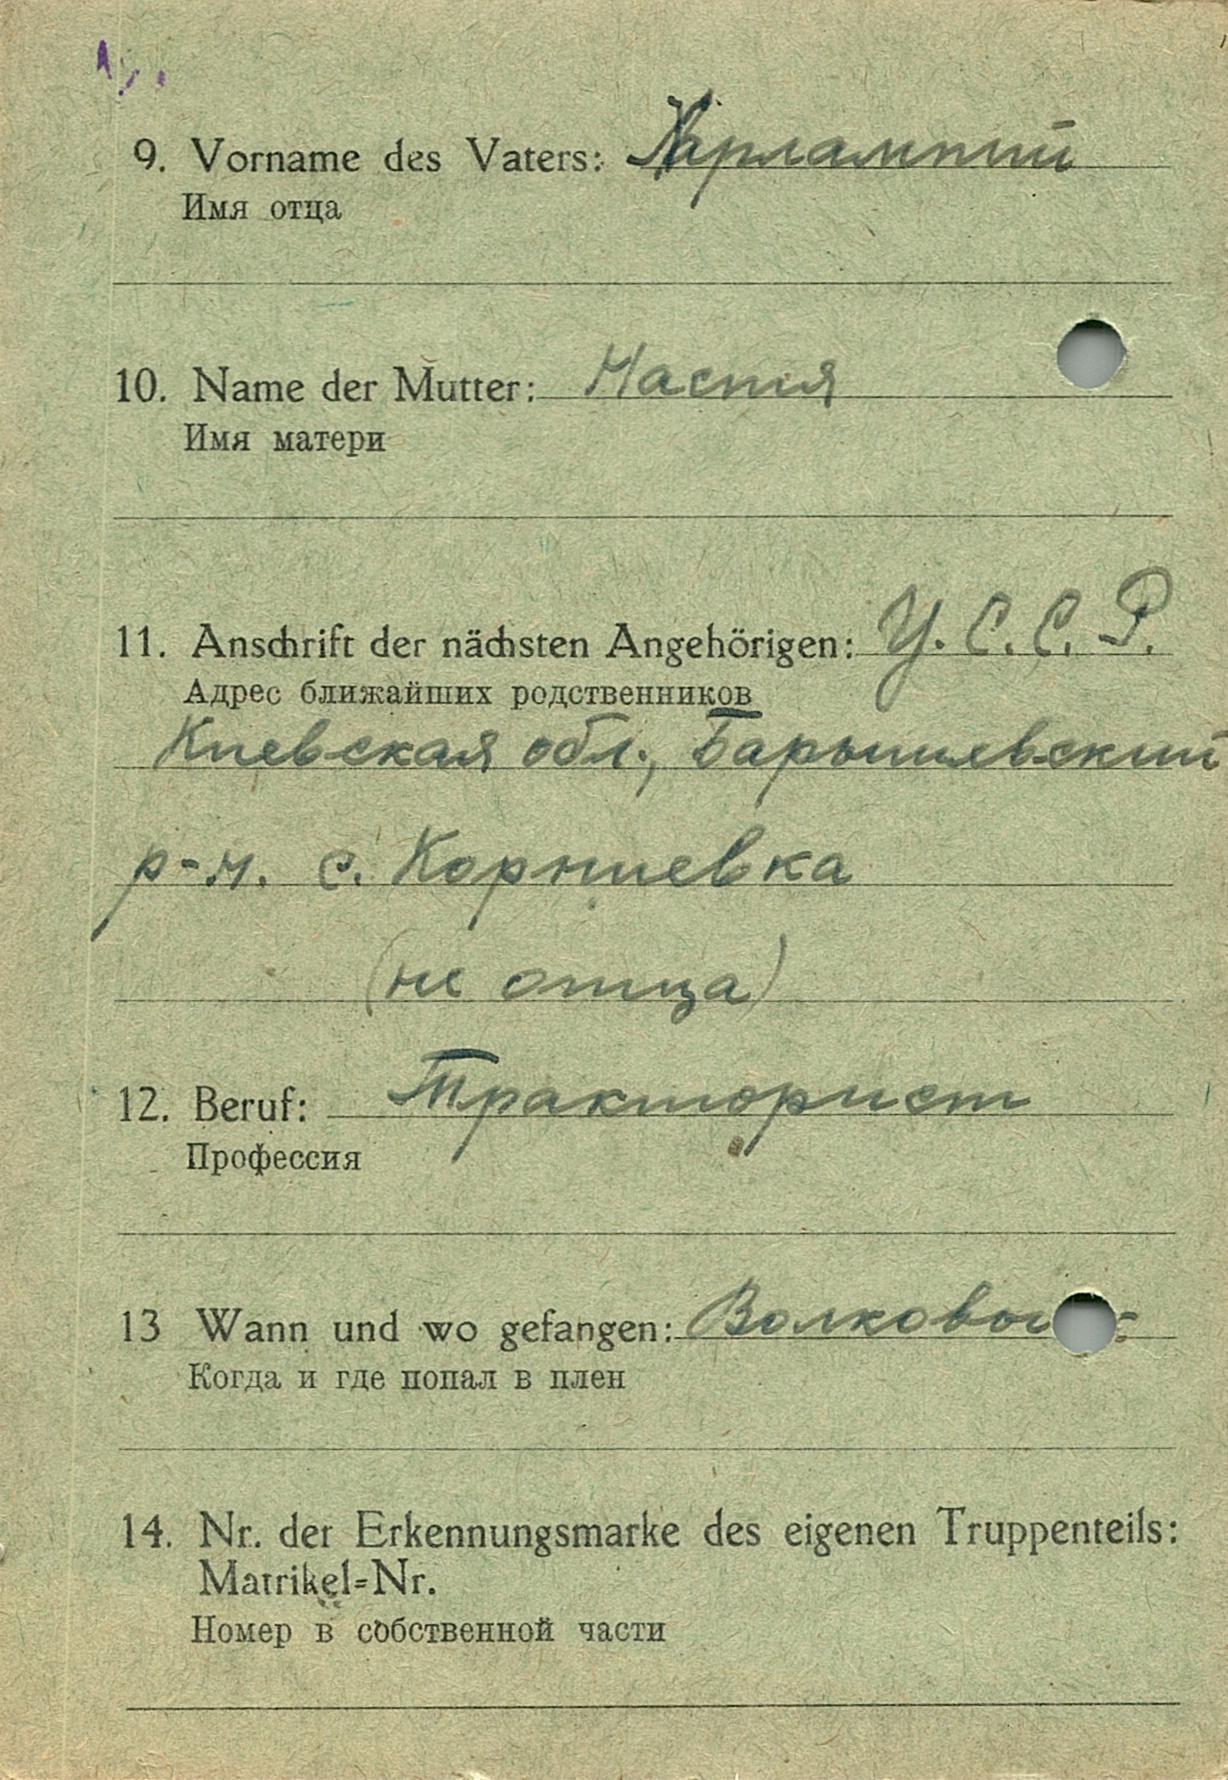 9. Vorname des Vaters: Харлампий
Имя отца
10. Name der Mutter: Настя
Имя матери
11. Anschrift der nächsten Angehörigen: У.С.С.Р.
Адрес ближайших родственников
Киевская обл., Барышевский
р-н. с. Корниевка
(не отца)
12. Beruf: Тракторист
Профессия
13 Wann und wo gefangen:
Когда и где попал в плен
14. Nr. der Erkennungsmarke des eigenen Truppenteils:
Matrikel=Nr.
Номер в собственной части